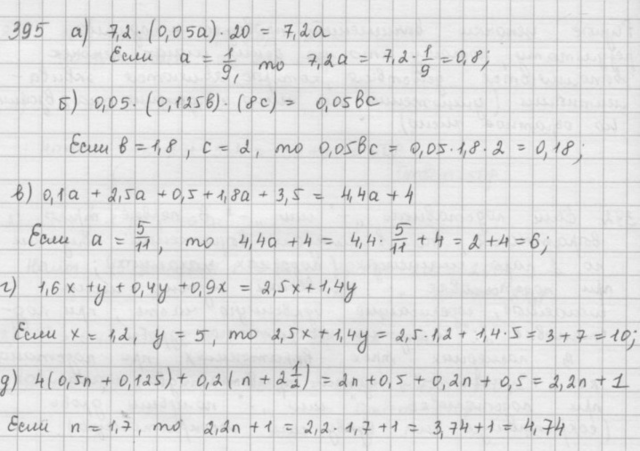 395 а) 7,2 · (0,05a) · 20 = 7,2a
Если a = 1/9, то 7,2a = 7,2 · 1/9 = 0,8;
б) 0,05 · (0,125в) · (8с) = 0,05вс
Если в = 1,8, с = 2, то 0,05вс = 0,05 · 1,8 · 2 = 0,18;
в) 0,1a + 2,5a + 0,5 + 1,8a + 3,5 = 4,4a + 4
Если a = 5/11, то 4,4a + 4 = 4,4 · 5/11 + 4 = 2 + 4 = 6;
г) 1,6x + y + 0,4y + 0,9x = 2,5x + 1,4y
Если x = 1,2, y = 5, то 2,5x + 1,4y = 2,5 · 1,2 + 1,4 · 5 = 3 + 7 = 10;
д) 4(0,5n + 0,125) + 0,2(n + 2 1/2) = 2n + 0,5 + 0,2n + 0,5 = 2,2n + 1
Если n = 1,7, то 2,2n + 1 = 2,2 · 1,7 + 1 = 3,74 + 1 = 4,74